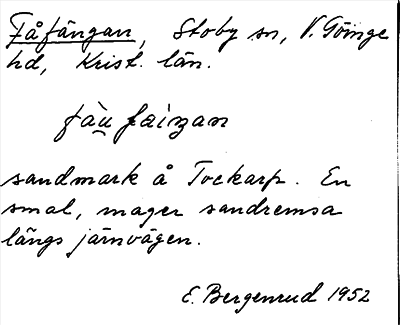 Fåfängan, Stoby sn, V. Göinge
hd, Krist. län.
sandmark å Tockarp. En
smal, mager sandremsa
längs järnvägen.
E. Bergenrud 1952